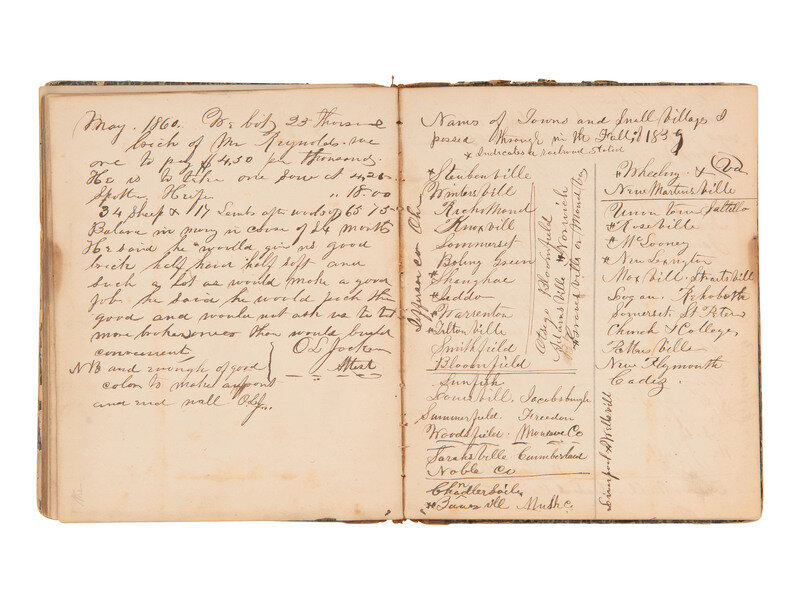 May. 1860. We bot 25 thousand
brick of Mr Reynolds. we
are to pay $4.50 per thousand.
He is to take one sow at 4,25
Spotted Heifer " 18.00
34 Sheep & 17 Lambs after wooled 65 75
Balance in money in course of 24 month
He said he would give us good
brick half hard half soft and
such a lot as would make a good
job. he said he would pick them
good and would not ask us to take
more broken ones than would build
convenient
NB and enough of good
color to make a front
and end wall OLJ.
O L Jocken
Attest
Names of Towns and Small Villages I
passed through in the Fall of 1859
* Indicates a railroad Station
Jefferson Co Ohio
* Steubenville
Wintersvill
Richmond
Knoxvill
Sommerset
Boling Green
* Shanghae
* Jeddo
* Warrenton
* Tiltonville
Smithfield
Bloomfield
Sunfish
Jacobsburgh
Summerfield. Freedom
Woodsfield. Monroe Co
Sarahsville Cumberland
Noble Co
Chandlersvile
* Zanesvill Musk Co
Otsego Bloomfield
Adamsville * Norwich
* Wheeling * Va
New Martinsville
Union town Saltillo
* Roseville
* McLooney
* New Lexington
Maxvill. Straitsvill
Logan. Rehoboth
Somerset. St Peters
Church & College,
New Plymouth
Cadiz.
Liverpool * Wellsvill